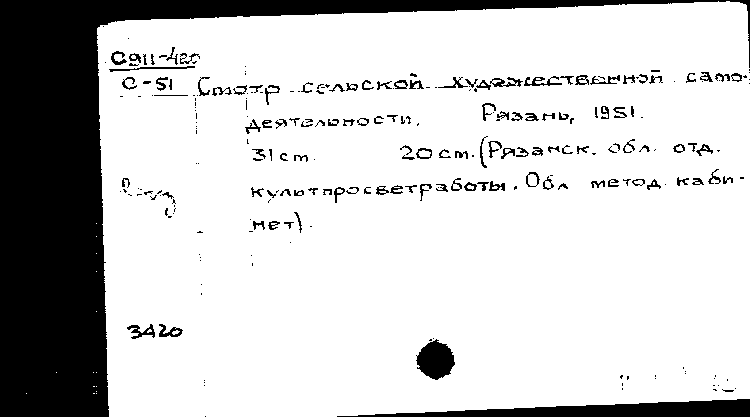 С911-420
С-51 Смотр сельской художественной само-
деятельности. Рязань, 1951.
31 ст. 20 см. (Рязанск. обл. отд.
культпросветработы. Обл метод. каби-
нет).
3420